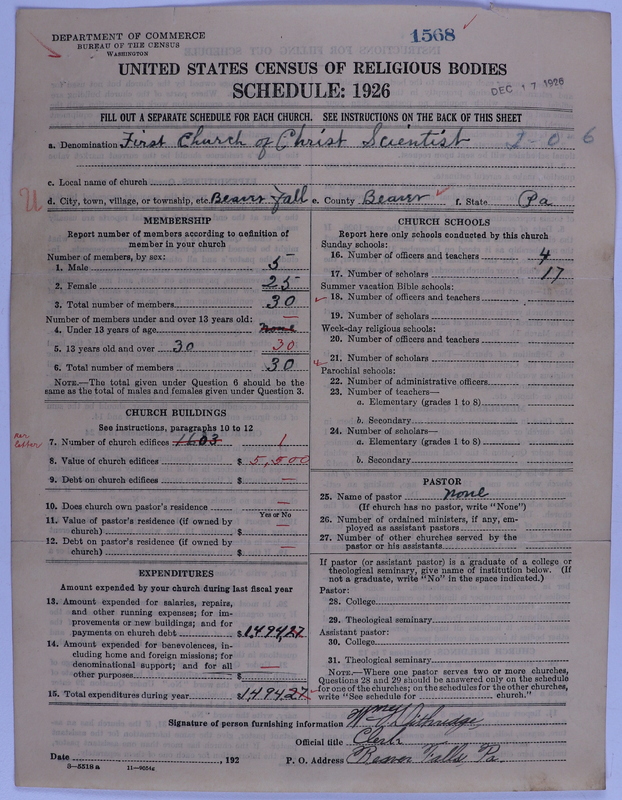 DEPARTMENT OF COMMERCE
BUREAU OF THE CENSUS
WASHINGTON
1568
DEC 17 1926
UNITED STATES CENSUS OF RELIGIOUS BODIES
SCHEDULE: 1926
FILL OUT A SEPARATE SCHEDULE FOR EACH CHURCH. SEE INSTRUCTIONS ON THE BACK OF THIS SHEET
a. Denomination First Church of Christ Scientist 2-0-6
c. Local name of church
U d. City, town, village, or township, etc. Beaver Fall e. County Beaver f. State Pa
MEMBERSHIP
Report number of members according to definition of
member in your church
Number of members, by sex:
1. Male 5
2. Female 25
3. Total number of members 30
Number of members under and over 13 years old: —
4. Under 13 years of age None
5. 13 years old and over 30 30
6. Total number of members 30
NOTE.—The total given under Question 6 should be the
same as the total of males and females given under Question 3.
CHURCH BUILDINGS
See instructions, paragraphs 10 to 12
7. Number of church edifices 1603 1
8. Value of church edifices $ 5,500
9. Debt on church edifices $ —
10. Does church own pastor's residence —
Yes or No
11. Value of pastor's residence (if owned by
church) $ —
12. Debt on pastor's residence (if owned by
church) $ —
EXPENDITURES
Amount expended by your church during last fiscal year
13. Amount expended for salaries, repairs,
and other running expenses; for im-
provements or new buildings; and for
payments on church debt $ 1494.27
14. Amount expended for benevolences, in-
cluding home and foreign missions; for
denominational support; and for all
other purposes $ —
15. Total expenditures during year $ 1494.27
CHURCH SCHOOLS
Report here only schools conducted by this church
Sunday schools:
16. Number of officers and teachers 4
17. Number of scholars 17
Summer vacation Bible schools:
18. Number of officers and teachers
19. Number of scholars
Week-day religious schools:
20. Number of officers and teachers
21. Number of scholars
Parochial schools:
22. Number of administrative officers
23. Number of teachers—
a. Elementary (grades 1 to 8)
b. Secondary
24. Number of scholars—
a. Elementary (grades 1 to 8)
b. Secondary
PASTOR
25. Name of pastor none
(If church has no pastor, write "None")
26. Number of ordained ministers, if any, em-
ployed as assistant pastors
27. Number of other churches served by the
pastor or his assistants
If pastor (or assistant pastor) is a graduate of a college or
theological seminary, give name of institution below. (If
not a graduate, write "No" in the space indicated.)
Pastor:
28. College
29. Theological seminary
Assistant pastor:
30. College
31. Theological seminary
NOTE.—Where one pastor serves two or more churches,
Questions 28 and 29 should be answered only on the schedule
for one of the churches; on the schedules for the other churches,
write "See schedule for church."
Signature of person furnishing information Dithridge
Official title Clerk
Date , 192 P. O. Address Beaver Falls, Pa.
8—5518 a